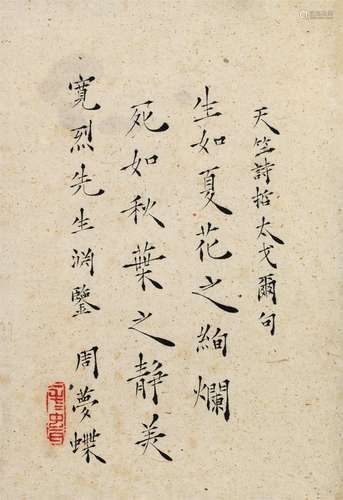 天竺詩哲太戈爾句
生如夏花之絢爛
死如秋葉之靜美
寬烈先生淵鑒 周夢蝶